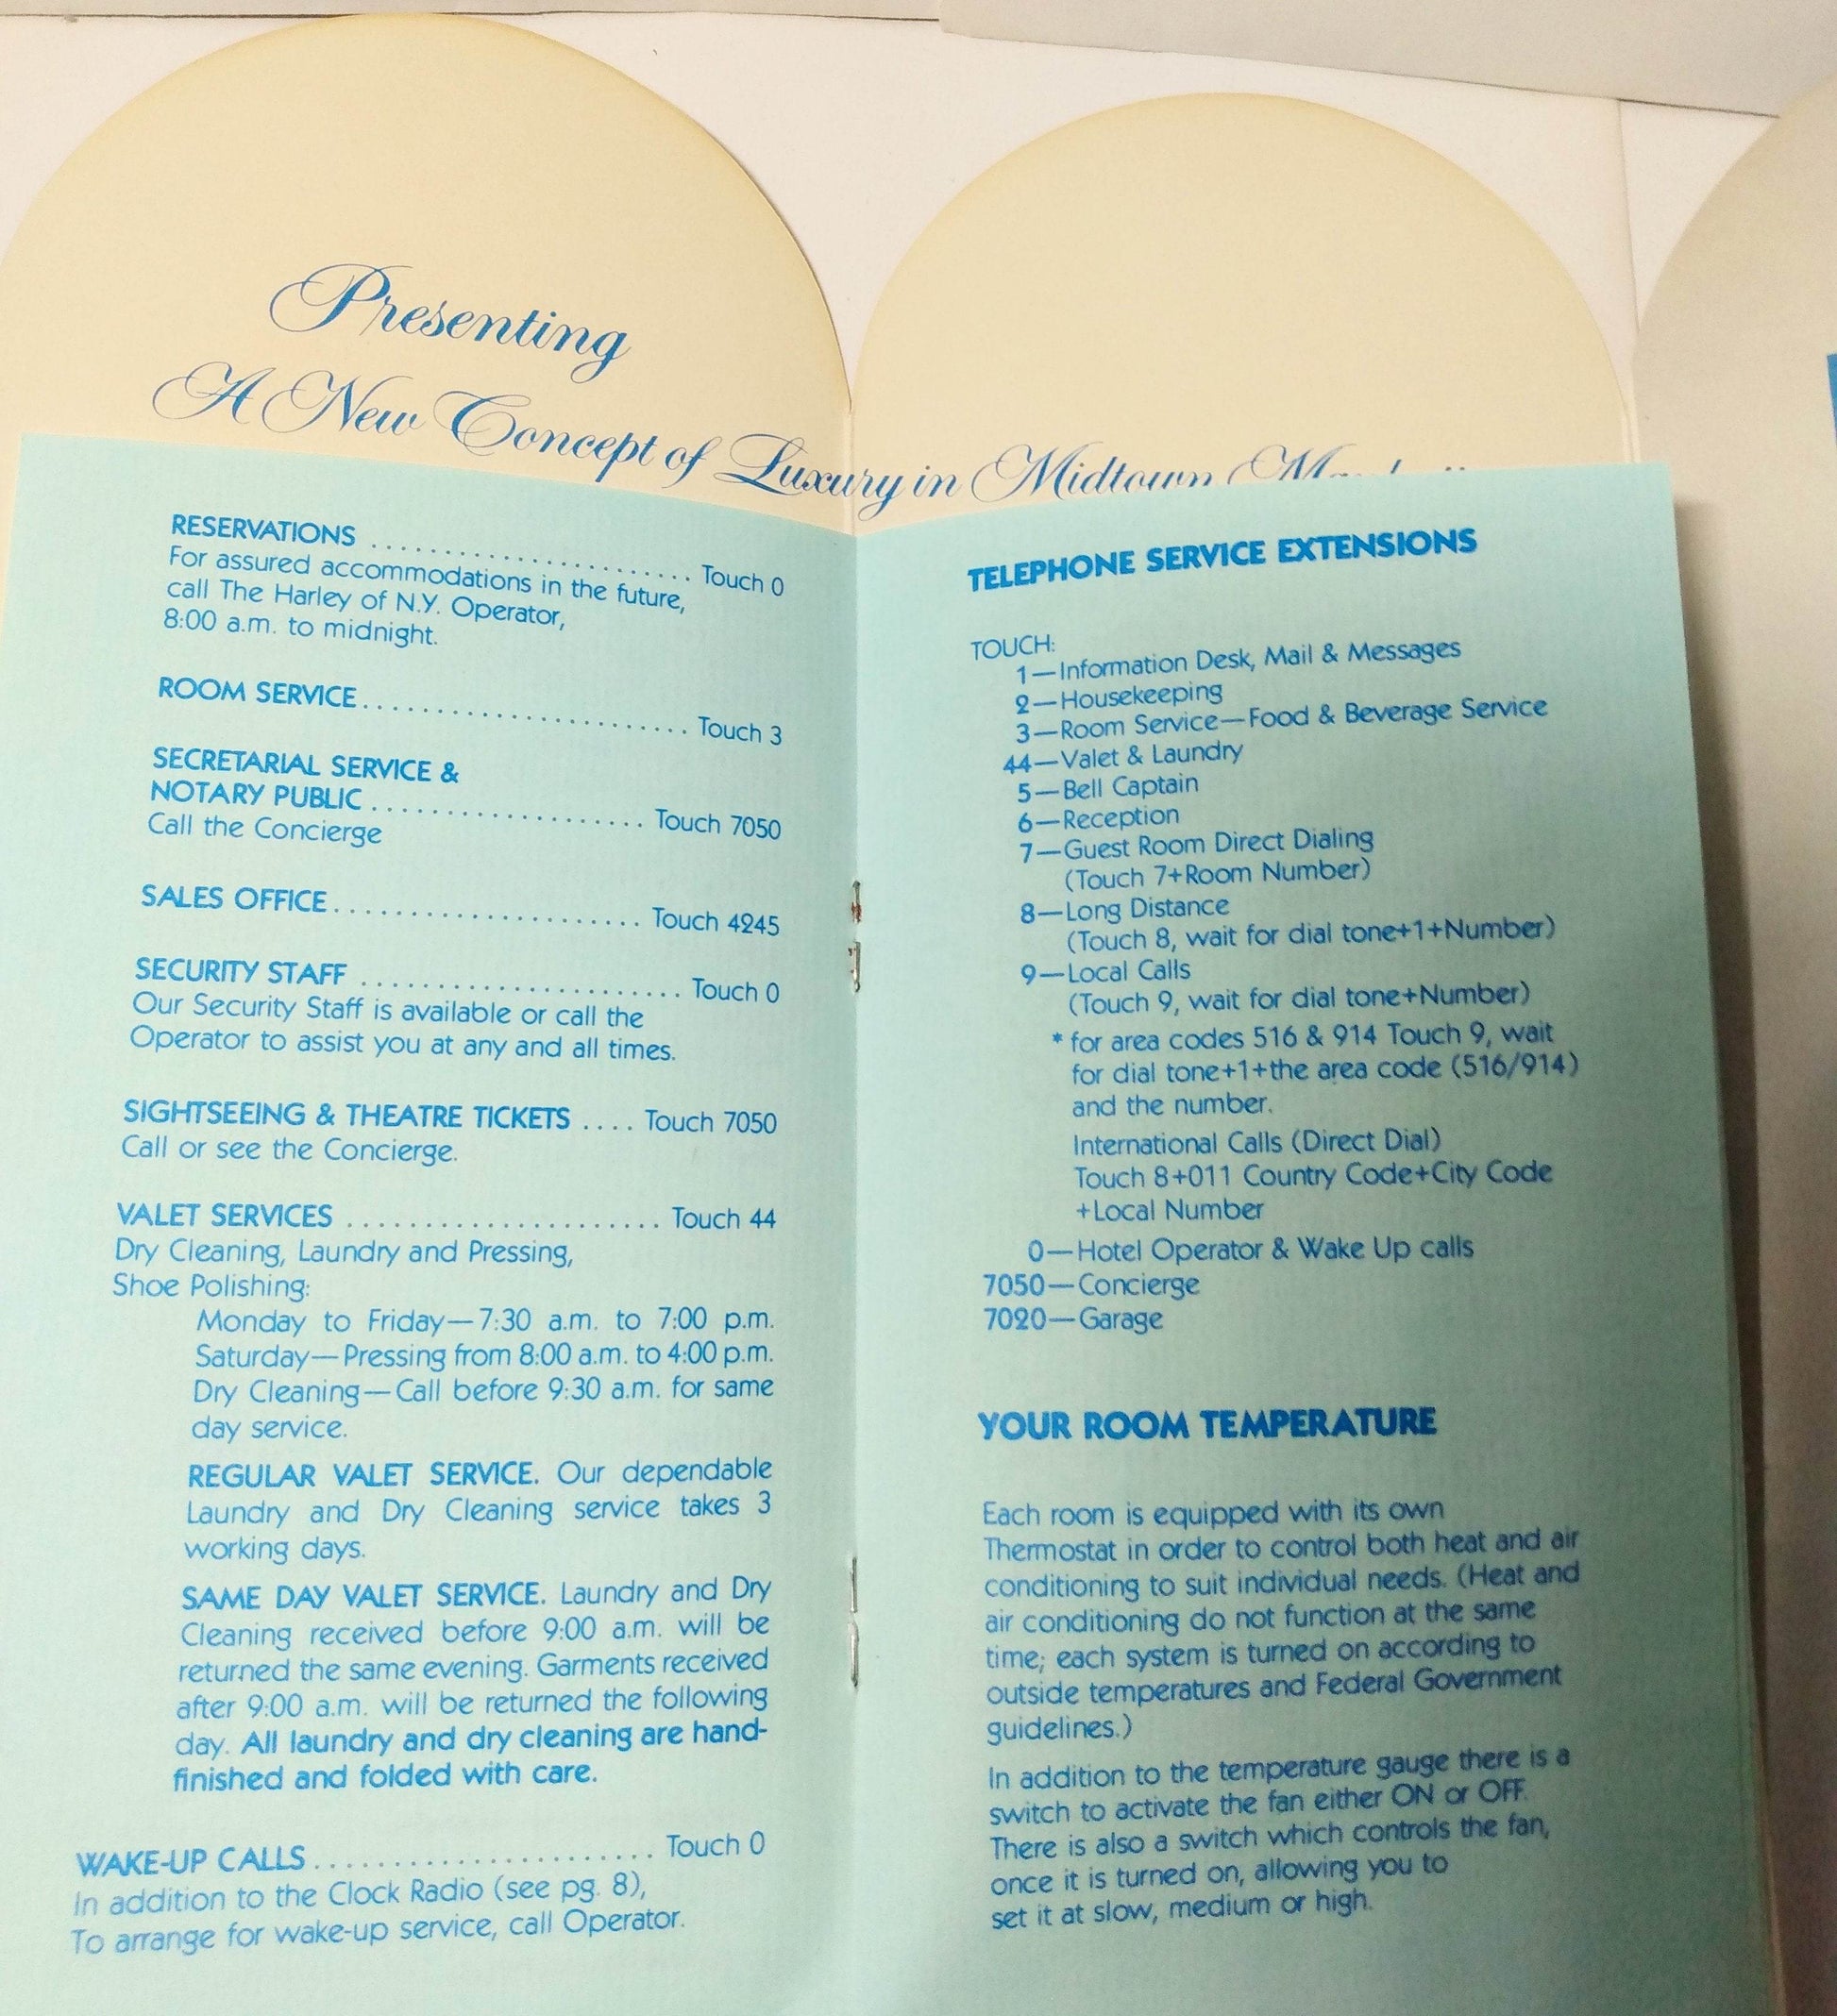 Presenting
A New Concept of Luxury in Midtown
RESERVATIONS .......................... Touch 0
For assured accommodations in the future,
call The Harley of N.Y. Operator,
8:00 a.m. to midnight.
ROOM SERVICE.......................... Touch 3
SECRETARIAL SERVICE &
NOTARY PUBLIC ..................... Touch 7050
Call the Concierge
SALES OFFICE....................... Touch 4245
SECURITY STAFF ........................ Touch 0
Our Security Staff is available or call the
Operator to assist you at any and all times.
SIGHTSEEING & THEATRE TICKETS .... Touch 7050
Call or see the Concierge.
VALET SERVICES ...................... Touch 44
Dry Cleaning, Laundry and Pressing,
Shoe Polishing:
Monday to Friday—7:30 a.m. to 7:00 p.m.
Saturday—Pressing from 8:00 a.m. to 4:00 p.m.
Dry Cleaning—Call before 9:30 a.m. for same
day service.
REGULAR VALET SERVICE. Our dependable
Laundry and Dry Cleaning service takes 3
working days.
SAME DAY VALET SERVICE. Laundry and Dry
Cleaning received before 9:00 a.m. will be
returned the same evening. Garments received
after 9:00 a.m. will be returned the following
day. All laundry and dry cleaning are hand-
finished and folded with care.
WAKE-UP CALLS........................ Touch 0
In addition to the Clock Radio (see pg. 8),
To arrange for wake-up service, call Operator.
TELEPHONE SERVICE EXTENSIONS
TOUCH:
1—Information Desk, Mail & Messages
2—Housekeeping
3—Room Service—Food & Beverage Service
44—Valet & Laundry
5—Bell Captain
6—Reception
7—Guest Room Direct Dialing
(Touch 7+Room Number)
8—Long Distance
(Touch 8, wait for dial tone+1+Number)
9—Local Calls
(Touch 9, wait for dial tone+Number)
* for area codes 516 & 914 Touch 9, wait
for dial tone+1+the area code (516/914)
and the number.
International Calls (Direct Dial)
Touch 8+011 Country Code+City Code
+Local Number
0—Hotel Operator & Wake Up calls
7050—Concierge
7020—Garage
YOUR ROOM TEMPERATURE
Each room is equipped with its own
Thermostat in order to control both heat and air
conditioning to suit individual needs. (Heat and
air conditioning do not function at the same
time; each system is turned on according to
outside temperatures and Federal Government
guidelines.)
In addition to the temperature gauge there is a
switch to activate the fan either ON or OFF.
There is also a switch which controls the fan,
once it is turned on, allowing you to
set it at slow, medium or high.